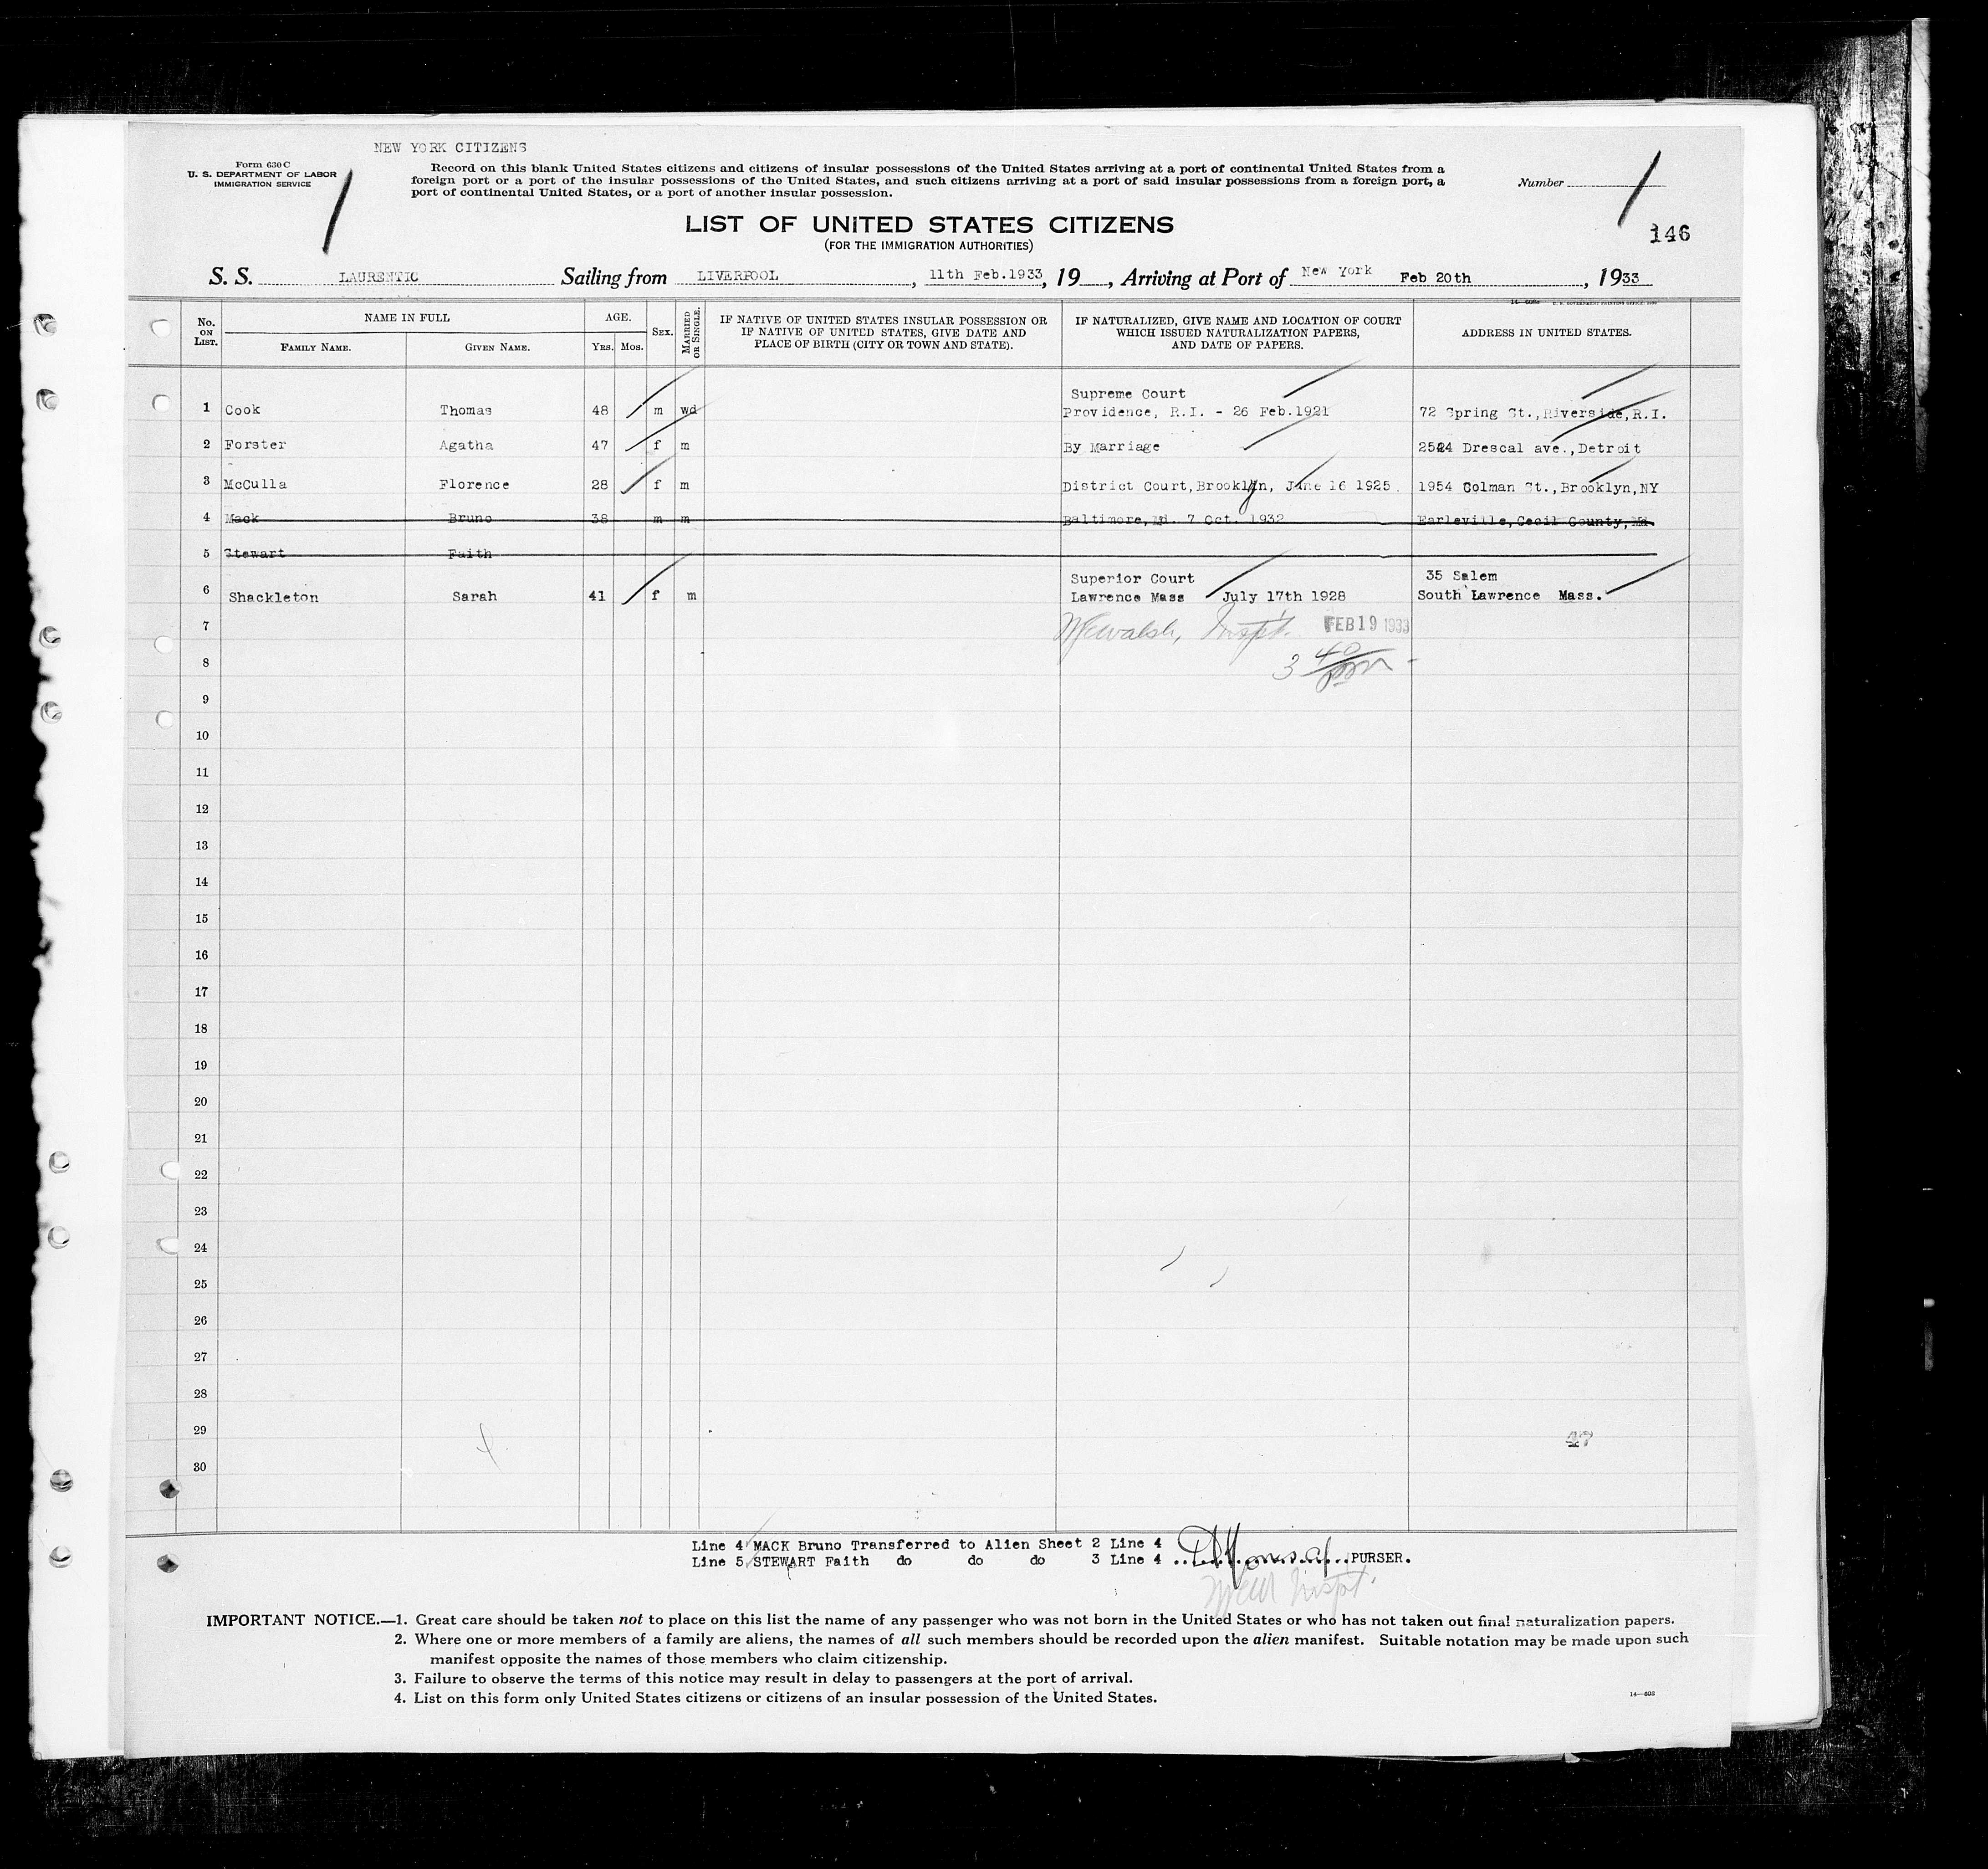 NEW YORK CITIZENS
Form 630 C
U. S. DEPARTMENT OF LABOR
IMMIGRATION SERVICE
Record on this blank United States citizens and citizens of insular possessions of the United States arriving at a port of continental United States from a
foreign port or a port of the insular possessions of the United States, and such citizens arriving at a port of said insular possessions from a foreign port, a
port of continental United States, or a port of another insular possession.
Number
LIST OF UNITED STATES CITIZENS
(FOR THE IMMIGRATION AUTHORITIES)
146
S. S. LAURENTIC Sailing from LIVERPOOL, 11th Feb.1933, 19 , Arriving at Port of New York Feb 20th , 1933
No. ON LIST. NAME IN FULL FAMILY NAME. GIVEN NAME. AGE. Yrs. Mos. SEX. MARRIED OR SINGLE. IF NATIVE OF UNITED STATES INSULAR POSSESSION OR IF NATIVE OF UNITED STATES, GIVE DATE AND PLACE OF BIRTH (CITY OR TOWN AND STATE). IF NATURALIZED, GIVE NAME AND LOCATION OF COURT WHICH ISSUED NATURALIZATION PAPERS, AND DATE OF PAPERS. ADDRESS IN UNITED STATES.
Supreme Court
1 Cook Thomas 48 m wd Providence, R.I. - 26 Feb.1921 72 Spring St.,Riverside,R.I.
2 Forster Agatha 47 f m By Marriage Drescal ave.,Detroit
3 McCulla Florence 28 f m District Court,Brooklyn, June 16 1925. 1954 Colman St.,Brooklyn,NY
4 Mack Bruno 38 m m Baltimore,Md. 7 Oct. 1932 Earleville,Cecil County,Md.
5 Stewart Faith
Superior Court 35 Salem
6 Shackleton Sarah 41 f m Lawrence Mass July 17th 1928 South Lawrence Mass.
7 Walsh, Inspt. FEB 19 1933
8 3 40
9
10
11
12
13
14
15
16
17
18
19
20
21
22
23
24
25
26
27
28
29 47
30
Line 4 MACK Bruno Transferred to Alien Sheet 2 Line 4
Line 5 STEWART Faith do do do 3 Line 4 PURSER.
Inspt.
IMPORTANT NOTICE.—1. Great care should be taken not to place on this list the name of any passenger who was not born in the United States or who has not taken out final naturalization papers.
2. Where one or more members of a family are aliens, the names of all such members should be recorded upon the alien manifest. Suitable notation may be made upon such
manifest opposite the names of those members who claim citizenship.
3. Failure to observe the terms of this notice may result in delay to passengers at the port of arrival.
4. List on this form only United States citizens or citizens of an insular possession of the United States.